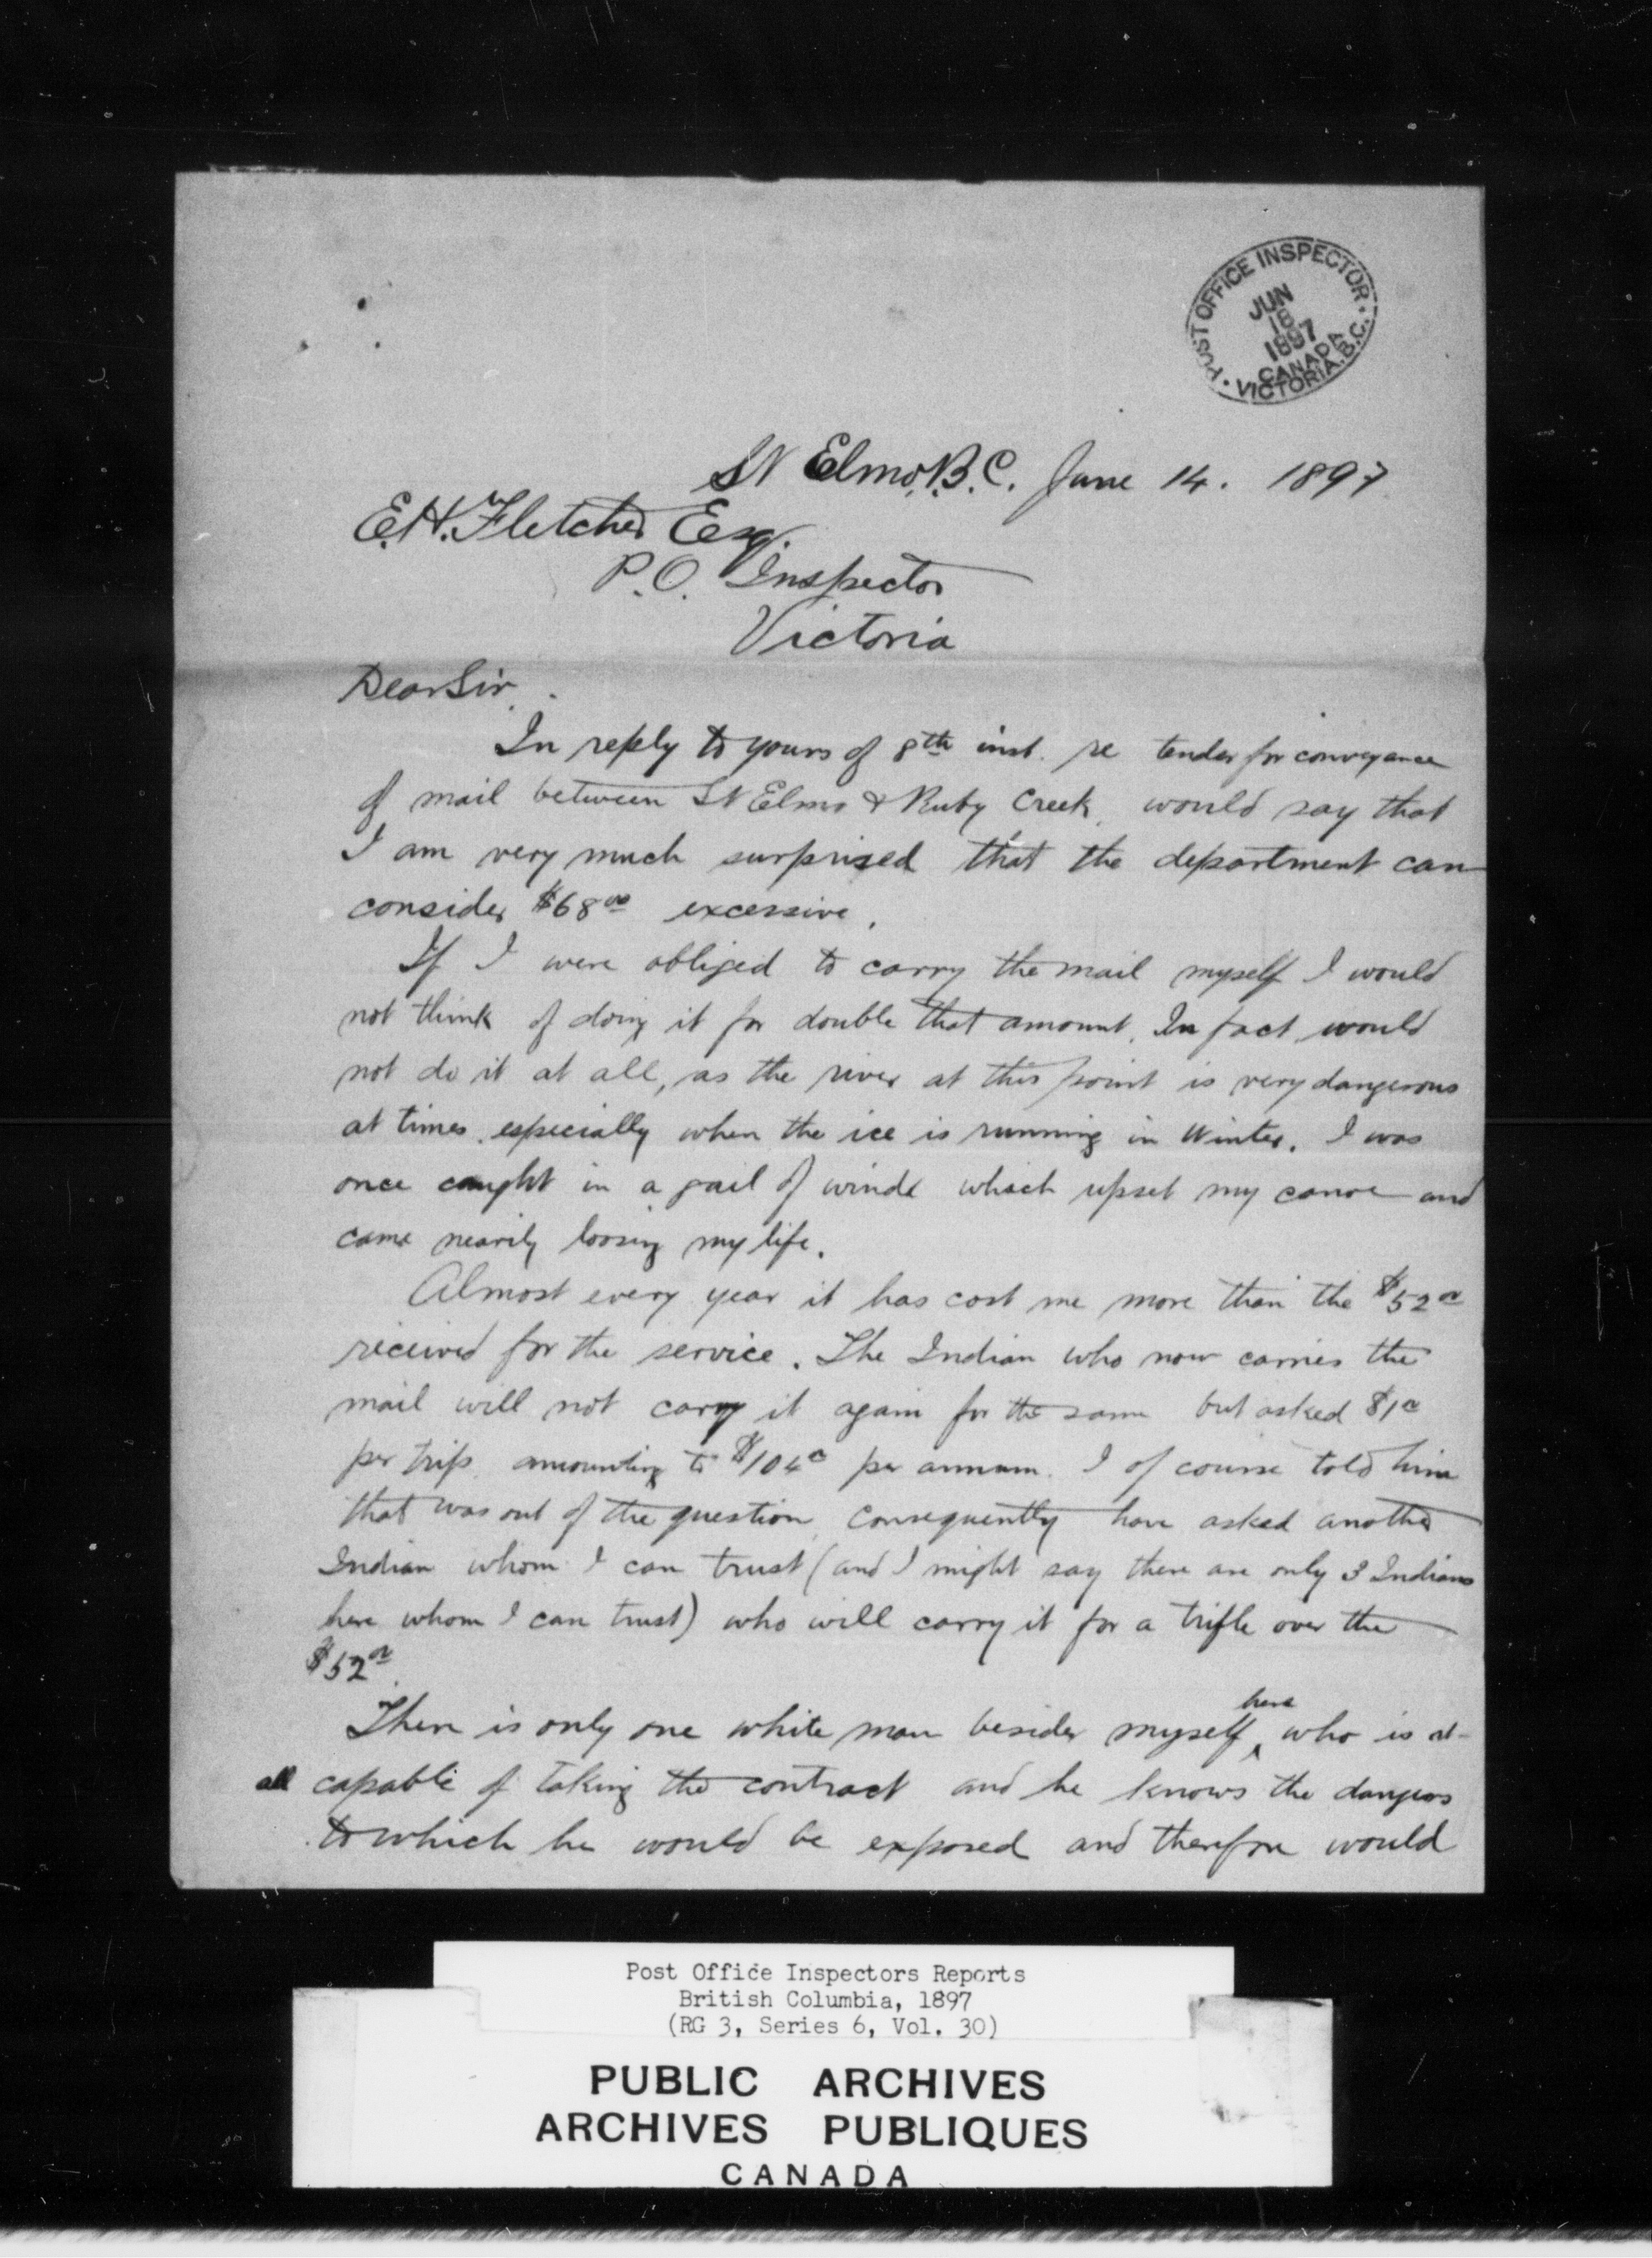 POST OFFICE INSPECTOR
JUN
18
1897
CANADA
VICTORIA. B.C.
St Elmo, B.C. June 14. 1897
E.H. Fletcher Esq.
P.O. Inspector
Victoria
Dear Sir.
In reply to yours of 8th inst. re tender for conveyance
of mail between St Elmo & Ruby Creek, would say that
I am very much surprised that the department can
consider $68.00 excessive.
If I were obliged to carry the mail myself I would
not think of doing it for double that amount. In fact would
not do it at all, as the river at this point is very dangerous
at times, especially when the ice is running in Winter. I was
once caught in a gail of winds which upset my canoe and
came nearily loosing my life.
Almost every year it has cost me more than the $52.00
received for the service. The Indian who now carries the
mail will not carry it again for the same but asked $1.00
per trip amounting to $104.00 per annum. I of course told him
that was out of the question, consequently have asked another
Indian whom I can trust (and I might say there are only 3 Indians
here whom I can trust) who will carry it for a trifle over the
$52.00.
There is only one white man besides myself here who is at
all capable of taking the contract and he knows the dangers
to which he would be exposed and therefore would
Post Office Inspectors Reports
British Columbia, 1897
(RG 3, Series 6, Vol. 30)
PUBLIC ARCHIVES
ARCHIVES PUBLIQUES
CANADA